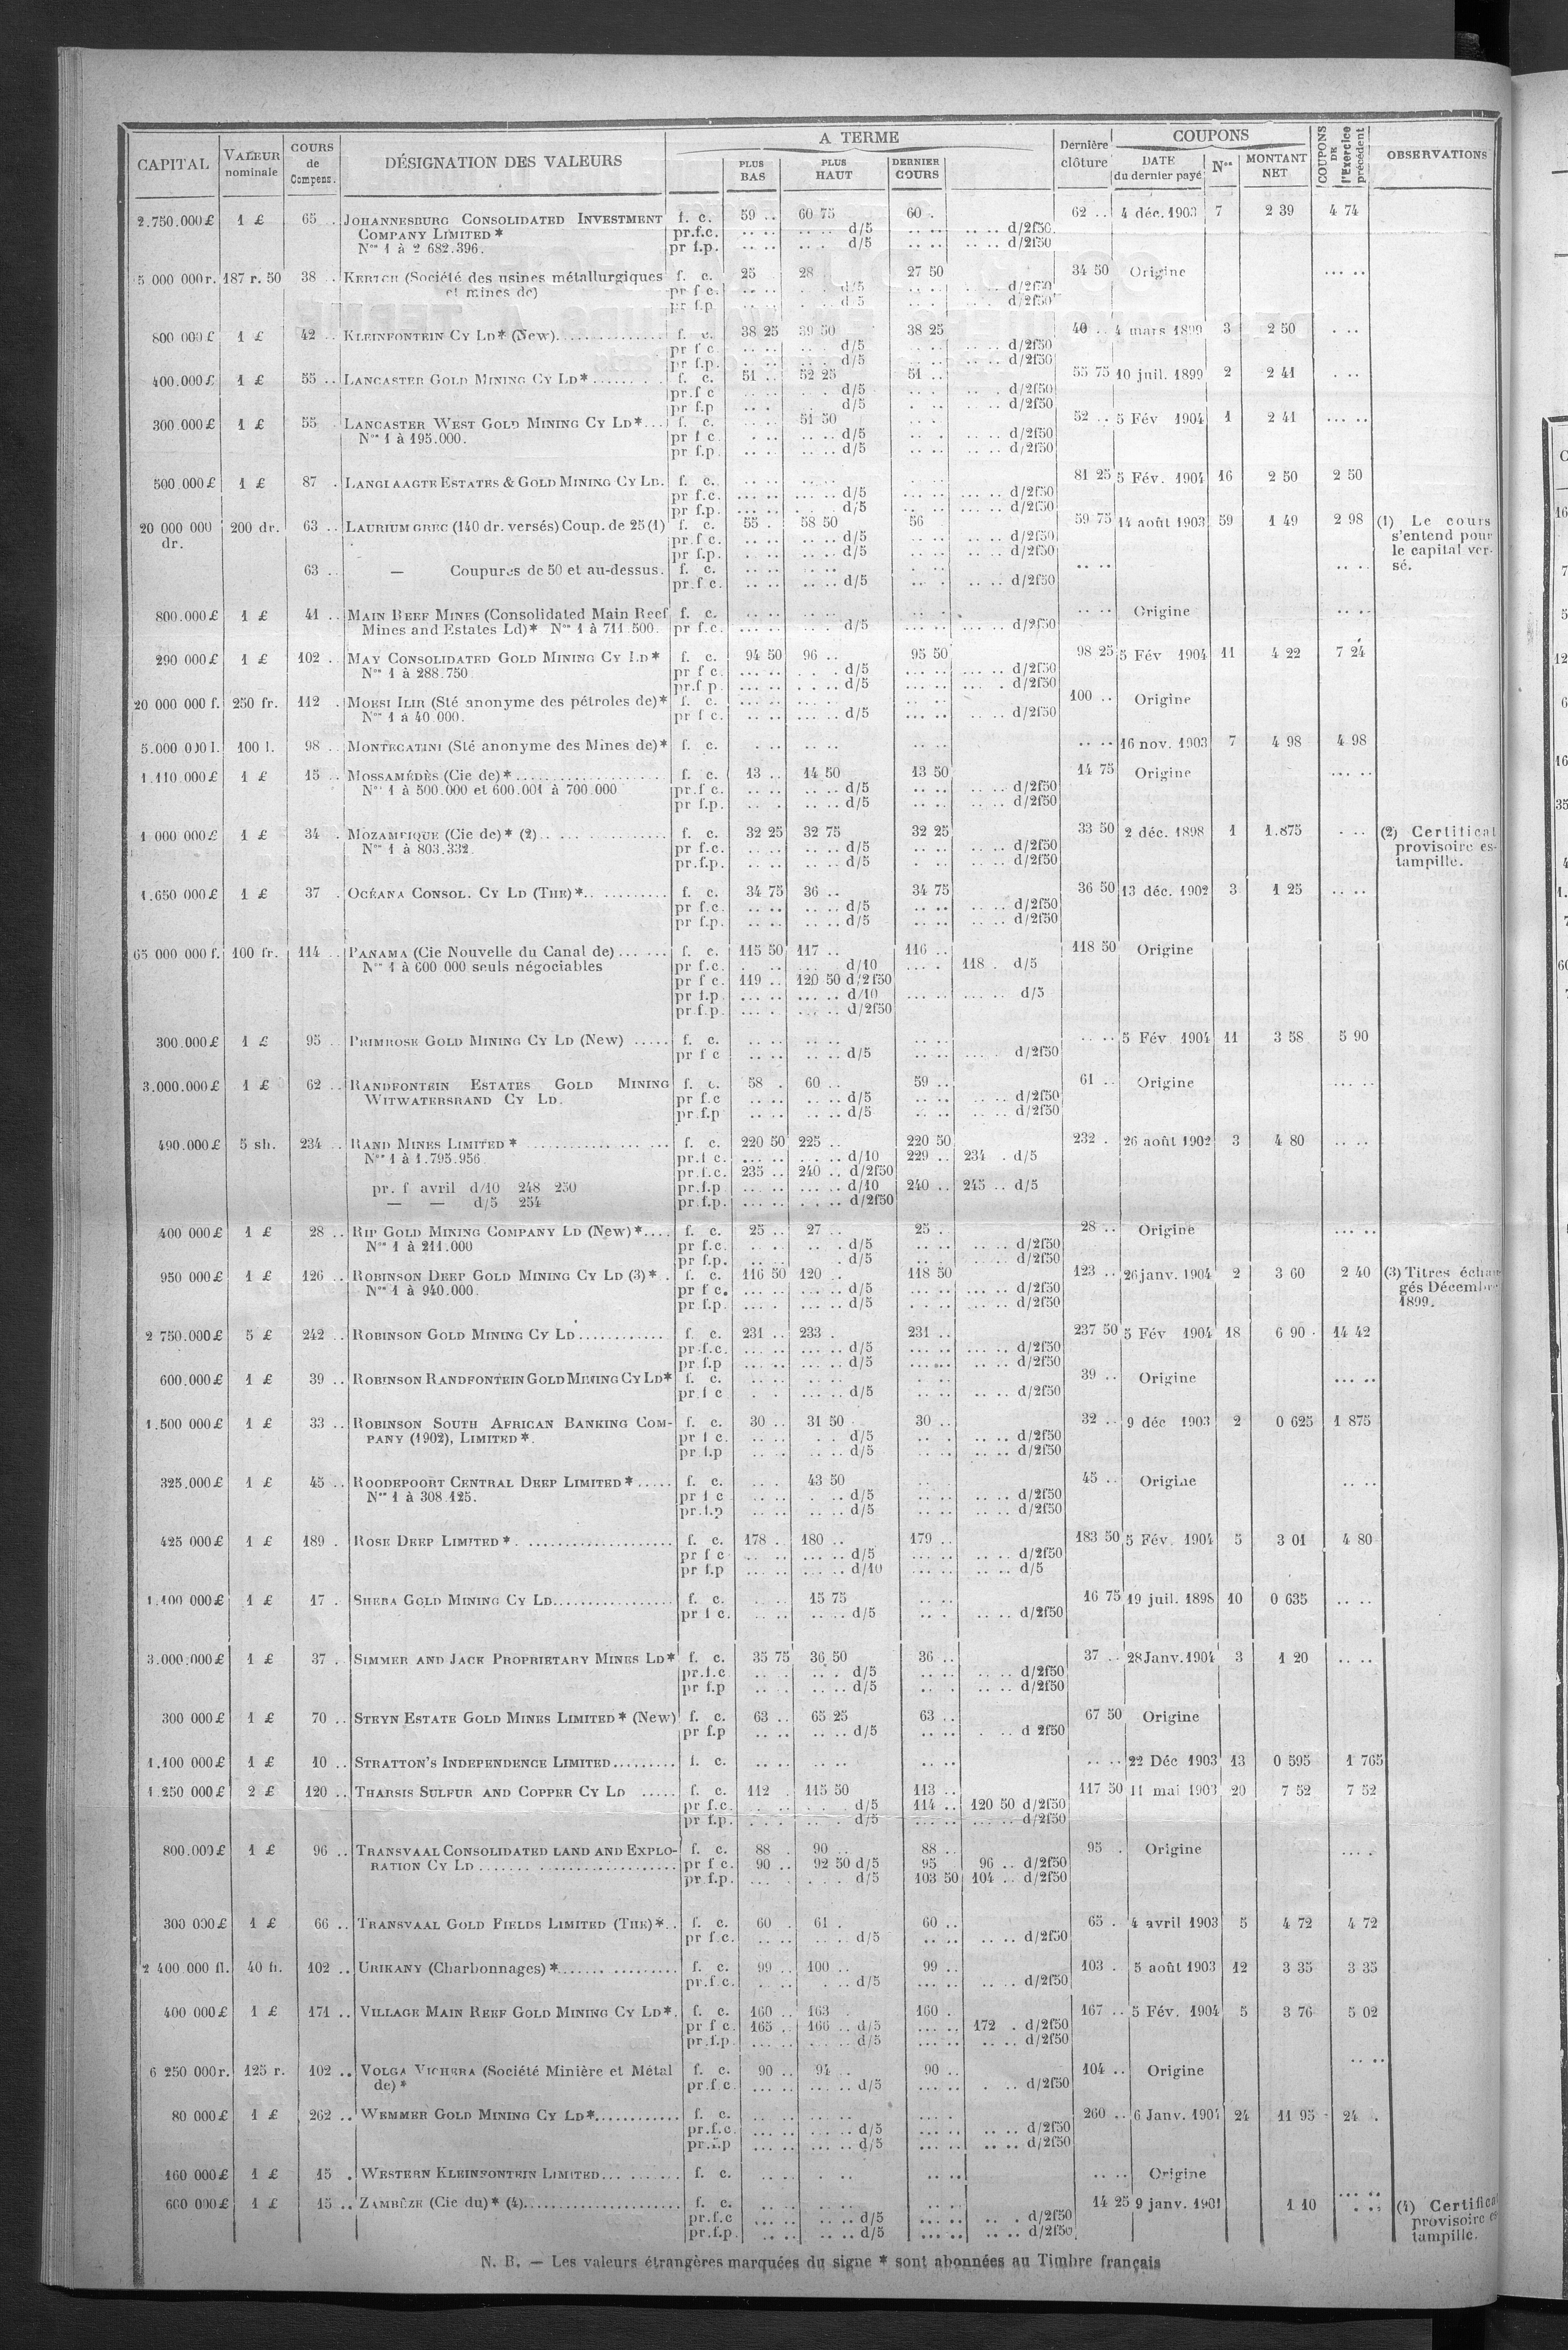 CAPITAL VALEUR nominale COURS de Compens. DÉSIGNATION DES VALEURS A TERME PLUS BAS PLUS HAUT DERNIER COURS Dernière clôture COUPONS DATE du dernier payé Nos MONTANT NET COUPONS DE l'Exercice précédent OBSERVATIONS
2.750.000£ 1 £ 65 .. JOHANNESBURG CONSOLIDATED INVESTMENT f. c. 59 .. 60 75 60 . 62 .. 4 déc. 1903 7 2 39 4 74
COMPANY LIMITED* pr.f.c. .. .. .. .. d/5 .. .. .. .. d/2f50
Nos 1 à 2 682.396. pr f.p. .. .. .. . d/5 .. .. .. .. d/2f50
5 000 000r. 187 r. 50 38 .. KERTCH (Société des usines métallurgiques f. c. 25 28 .. 27 50 34 50 Origine ... ..
et mines de) pr f c. .. .. d/5 .. . d/2f50
pr f.p d/5 d/2f50
800 000£ 1 £ 42 .. KLEINFONTEIN CY LD* (New). f. c. 38 25 39 50 38 25 40 .. 4 mars 1899 3 2 50 . ..
pr f c. .. .. d/5 d/2f50
pr f.p. .. .. d/5 d/2f50
400.000£ 1 £ 55 .. LANCASTER GOLD MINING CY LD* f. c. 51 .. 52 25 51 .. 55 75 10 juil. 1899 2 2 41 . ..
pr.f c d/5 d/2f50
pr f.p d/5 d/2f50
300.000£ 1 £ 55 LANCASTER WEST GOLD MINING CY LD*... f. c. 51 50 52 .. 5 Fév 1904 1 2 41 ... ..
Nos 1 à 195.000. pr f c. d/5 d/2f50
pr f.p. d/5 d/2f50
500.000£ 1 £ 87 . LANGLAAGTE ESTATES & GOLD MINING CY LD. f. c. 81 25 5 Fév. 1904 16 2 50 2 50
pr f.c. d/5 d/2f50
pr f.p. d/5 d/2f50
20 000 000 200 dr. 63 .. LAURIUM GREC (140 dr. versés) Coup. de 25 (1) f. c. 55 . 58 50 56 59 75 14 août 1903 59 1 49 2 98 (1) Le cours
dr. pr.f c. d/5 d/2f50 s'entend pour
pr f.p. d/5 d/2f50 le capital ver-
63 .. — Coupures de 50 et au-dessus. f. c. .. .. sé.
pr.f c. d/5 d/2f50
800.000£ 1 £ 41 .. MAIN REEF MINES (Consolidated Main Reef f. c. .. .. Origine
Mines and Estates Ld)* Nos 1 à 711.500. pr f.c. d/5 d/2f50
290 000£ 1 £ 102 .. MAY CONSOLIDATED GOLD MINING CY LD* f. c. 94 50 96 .. 95 50 98 25 5 Fév 1904 11 4 22 7 24
Nos 1 à 288.750. pr f c. d/5 d/2f50
pr.f p. d/5 d/2f50
20 000 000 f. 250 fr. 112 . MOESI ILIR (Sté anonyme des pétroles de)* f. c. 100 .. Origine
Nos 1 à 40 000. pr f c. d/5 d/2f50
5.000 000 l. 100 l. 98 .. MONTECATINI (Sté anonyme des Mines de)* f. c. .. .. 16 nov. 1903 7 4 98 4 98
1.110.000£ 1 £ 15 .. MOSSAMÉDÈS (Cie de)* f. c. 13 .. 14 50 13 50 14 75 Origine ... ..
Nos 1 à 500.000 et 600.001 à 700.000 pr.f c. d/5 d/2f50
pr f.p. d/5 d/2f50
1 000 000£ 1 £ 34 . MOZAMBIQUE (Cie de)* (2) f. c. 32 25 32 75 32 25 33 50 2 déc. 1898 1 1.875 . .. (2) Certificat
Nos 1 à 803.332. pr f.c. d/5 d/2f50 provisoire es-
pr.f.p. d/5 d/2f50 tampille.
1.650 000£ 1 £ 37 . OCÉANA CONSOL. CY LD (THE)* f. c. 34 75 36 .. 34 75 36 50 13 déc. 1902 3 1 25 .. ..
pr f.c. d/5 d/2f50
pr f.p. d/5 d/2f50
65 000 000 f. 100 fr. 114 .. PANAMA (Cie Nouvelle du Canal de) f. c. 115 50 117 .. 116 .. 118 50 Origine
Nos 1 à 600 000 seuls négociables pr f.c. d/10 118 . d/5
pr f c. 119 .. 120 50 d/2f50
pr f.p. d/10 d/5
pr f.p. d/2f50
300.000£ 1 £ 95 .. PRIMROSE GOLD MINING CY LD (New) ..... f. c. .. .. 5 Fév 1904 11 3 58 5 90
pr f c d/5 d/2f50
3.000.000£ 1 £ 62 .. RANDFONTEIN ESTATES GOLD MINING f. c. 58 . 60 .. 59 .. 61 .. Origine ... ..
WITWATERSRAND CY LD. pr f.c d/5 d/2f50
pr.f.p d/5 d/2f50
490.000£ 5 sh. 234 .. RAND MINES LIMITED* f. c. 220 50 225 .. 220 50 232 . 26 août 1902 3 4 80 .. ..
Nos 1 à 1.795.956 pr.f c. d/10 229 .. 234 . d/5
pr.f.c. 235 .. 240 .. d/2f50
pr. f avril d/10 248 250 pr.f.p d/10 240 .. 245 .. d/5
— — d/5 254 pr.f.p. d/2f50
400 000£ 1 £ 28 .. RIP GOLD MINING COMPANY LD (New)*.... f. c. 25 .. 27 .. 25 .. 28 .. Origine ... ..
Nos 1 à 211.000 pr f.c. d/5 d/2f50
pr f.p. d/5 d/2f50
950 000£ 1 £ 126 .. ROBINSON DEEP GOLD MINING CY LD (3)* . f. c. 116 50 120 .. 118 50 123 .. 26 janv. 1904 2 3 60 2 40 (3) Titres échan
Nos 1 à 940.000. pr f c. d/5 d/2f50 gés Décembre
pr f.p. d/5 d/2f50 1899.
2 750.000£ 5 £ 242 .. ROBINSON GOLD MINING CY LD f. c. 231 .. 233 . 231 .. 237 50 5 Fév 1904 18 6 90 14 42
pr.f.c. d/5 d/2f50
pr f.p d/5 d/2f50
600.000£ 1 £ 39 .. ROBINSON RANDFONTEIN GOLD MINING CY LD* f. c. 39 .. Origine ... ..
pr.f c d/5 d/2f50
1.500 000£ 1 £ 33 .. ROBINSON SOUTH AFRICAN BANKING COM- f. c. 30 .. 31 50 30 .. 32 .. 9 déc 1903 2 0 625 1 875
PANY (1902), LIMITED*. pr f c. d/5 d/2f50
pr f.p d/5 d/2f50
325.000£ 1 £ 45 .. ROODEPOORT CENTRAL DEEP LIMITED* ..... f. c. 43 50 45 .. Origine .. ..
Nos 1 à 308.125. pr f c d/5 d/2f50
pr.f.p d/5 d/2f50
425 000£ 1 £ 189 . ROSE DEEP LIMITED* f. c. 178 . 180 .. 179 .. 183 50 5 Fév. 1904 5 3 01 4 80
pr f c d/5 d/2f50
pr f.p d/10 d/5
1.100 000£ 1 £ 17 . SHEBA GOLD MINING CY LD f. c. 15 75 16 75 19 juil. 1898 10 0 635 .. ..
pr f c. d/5 d/2f50
3.000.000£ 1 £ 37 . SIMMER AND JACK PROPRIETARY MINES LD* f. c. 35 75 36 50 36 .. 37 .. 28 Janv. 1904 3 1 20 .. ..
pr.f.c d/5 d/2f50
pr f.p d/5 d/2f50
300 000£ 1 £ 70 .. STEYN ESTATE GOLD MINES LIMITED* (New) f. c. 63 .. 65 25 63 .. 67 50 Origine
pr f.p d/5 d 2f50
1.100 000£ 1 £ 10 .. STRATTON'S INDEPENDENCE LIMITED f. c. .. .. 22 Déc 1903 13 0 595 1 765
1.250 000£ 2 £ 120 .. THARSIS SULFUR AND COPPER CY LD ..... f. c. 112 . 115 50 113 .. 117 50 11 mai 1903 20 7 52 7 52
pr f.c. d/5 114 .. 120 50 d/2f50
pr f.p. d/5 d/2f50
800.000£ 1 £ 96 .. TRANSVAAL CONSOLIDATED LAND AND EXPLO- f. c. 88 . 90 .. 88 .. 95 . Origine
RATION CY LD pr f c. 90 .. 92 50 d/5 95 96 .. d/2f50
pr f.p. d/5 103 50 104 .. d/2f50
300 000£ 1 £ 66 .. TRANSVAAL GOLD FIELDS LIMITED (THE)*.. f. c. 60 . 61 . 60 .. 65 . 4 avril 1903 5 4 72 4 72
pr f.c. d/5 d/2f50
2 400 000 fl. 40 fl. 102 .. URIKANY (Charbonnages)* f. c. 99 .. 100 .. 99 .. 103 . 5 août 1903 12 3 35 3 35
pr.f.c. d/5 d/2f50
400 000£ 1 £ 171 .. VILLAGE MAIN REEF GOLD MINING CY LD*. f. c. 160 .. 163 . 160 . 167 .. 5 Fév. 1904 5 3 76 5 02
pr f c. 165 .. 166 .. d/5 172 . d/2f50
pr.f.p d/5 d/2f50
6 250 000r. 125 r. 102 .. VOLGA VICHERA (Société Minière et Métal f. c. 90 .. 94 .. 90 .. 104 .. Origine .. ..
de)* pr.f c. d/5 d/2f50
80 000£ 1 £ 262 .. WEMMER GOLD MINING CY LD* f. c. 260 .. 6 Janv. 1904 24 11 95 24 .
pr.f.c. d/5 d/2f50
pr.f.p d/5 d/2f50
160 000£ 1 £ 15 . WESTERN KLEINFONTEIN LIMITED f. c. .. .. Origine
600 000£ 1 £ 15 .. ZAMBÈZE (Cie du)* (4) f. c. 14 25 9 janv. 1901 1 10 (4) Certificat
pr.f.c d/5 d/2f50 provisoire es
pr.f.p. d/5 d/2f50 tampille.
N. B. — Les valeurs étrangères marquées du signe * sont abonnées au Timbre français